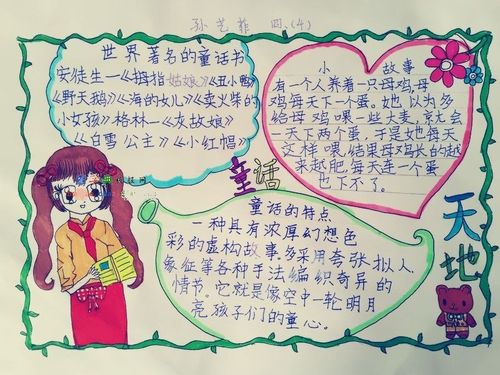 孙艺菲 四.(4)
世界著名的童话书
安徒生—《拇指姑娘》《丑小鸭》
《野天鹅》《海的女儿》《卖火柴的
小女孩》格林—《灰故娘》
《白雪公主》《小红帽》
小 故事
有一个人养着一只母鸡,母
鸡每天下一个蛋。她以为多
给母鸡喂一些大麦,就会
一天下两个蛋,于是她每天
这样喂,结果母鸡长的越
来越肥,每天连一个蛋
也下不了。
童话
天地
童话的特点
一种具有浓厚幻想色
彩的虚构故事多采用夸张拟人、
象征等各种手法编织奇异的
情节,它就是像空中一轮明月
亮孩子们的童心。